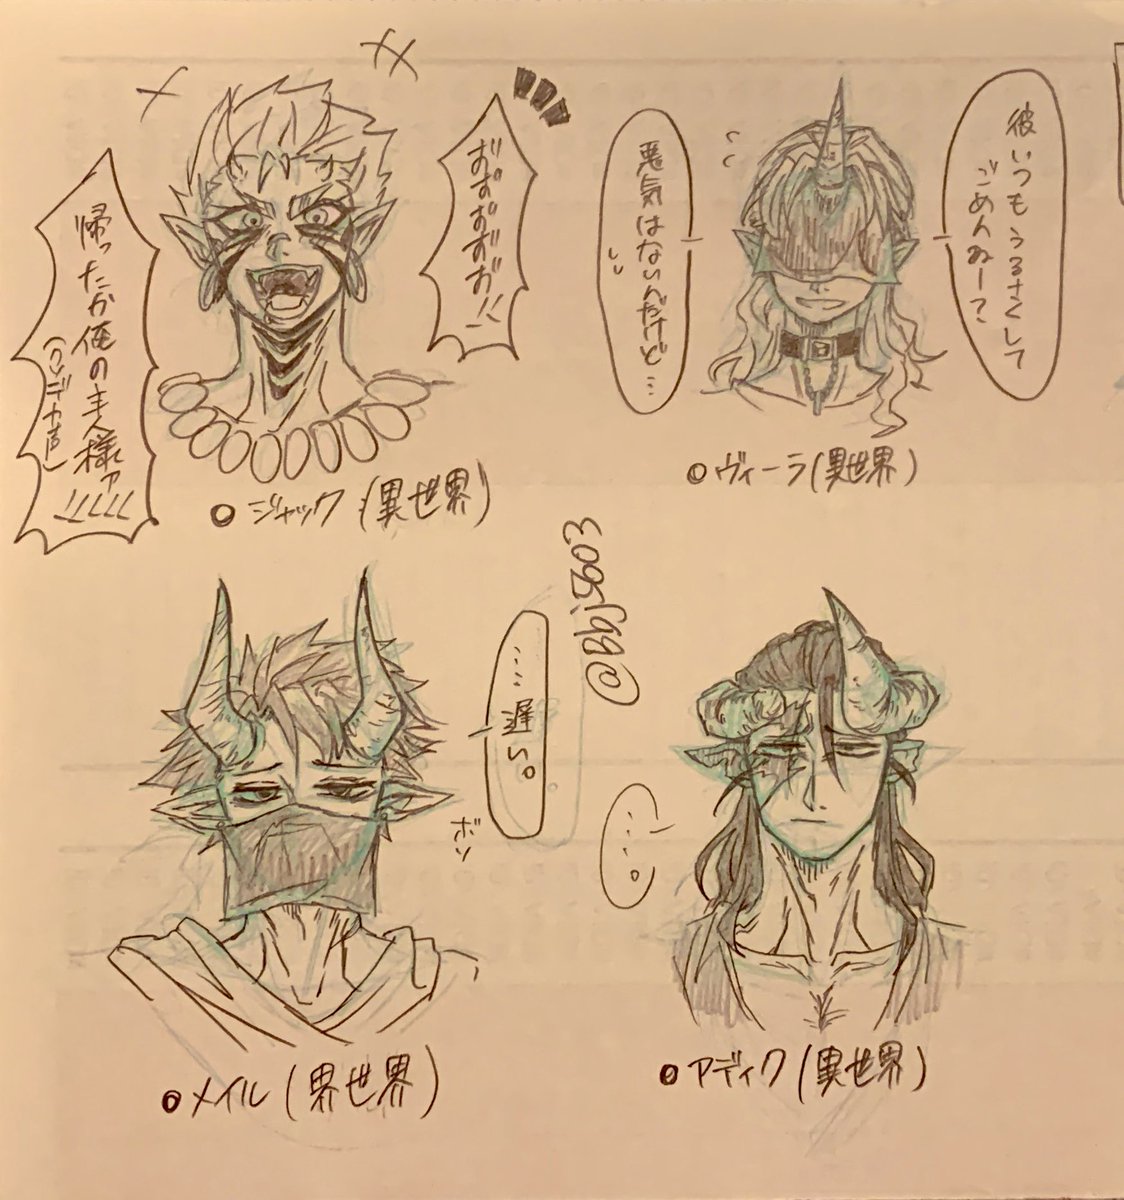 帰ったか俺の主人様ァ
(クソデカ声)
●ジャック(異世界)
彼いつもうるさくして
ごめんねー?
悪気はないんだけど…
●ヴィーラ(異世界)
……遅い。
ボソ
●メイル(界世界)
……。
●アディク(異世界)